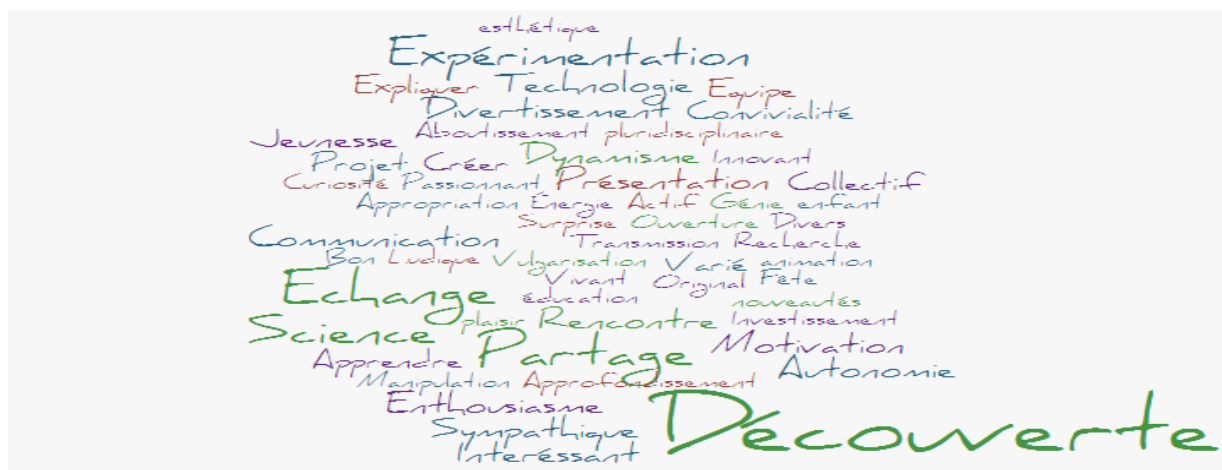 esthétique
Expérimentation
Expliquer Technologie Equipe
Divertissement Convivialité
Jeunesse Aboutissement pluridisciplinaire
Projet Créer Dynamisme Innovant
Curiosité Passionnant Présentation Collectif
Appropriation Énergie Actif Génie enfant
Surprise Ouverture Divers
Communication Transmission Recherche
Bon Ludique Vulgarisation Varié animation
Echange Vivant Original Fête
éducation nouveautés
Science plaisir Rencontre Investissement
Partage Motivation
Apprendre Autonomie
Manipulation Approfondissement
Enthousiasme Découverte
Sympathique
Interéssant